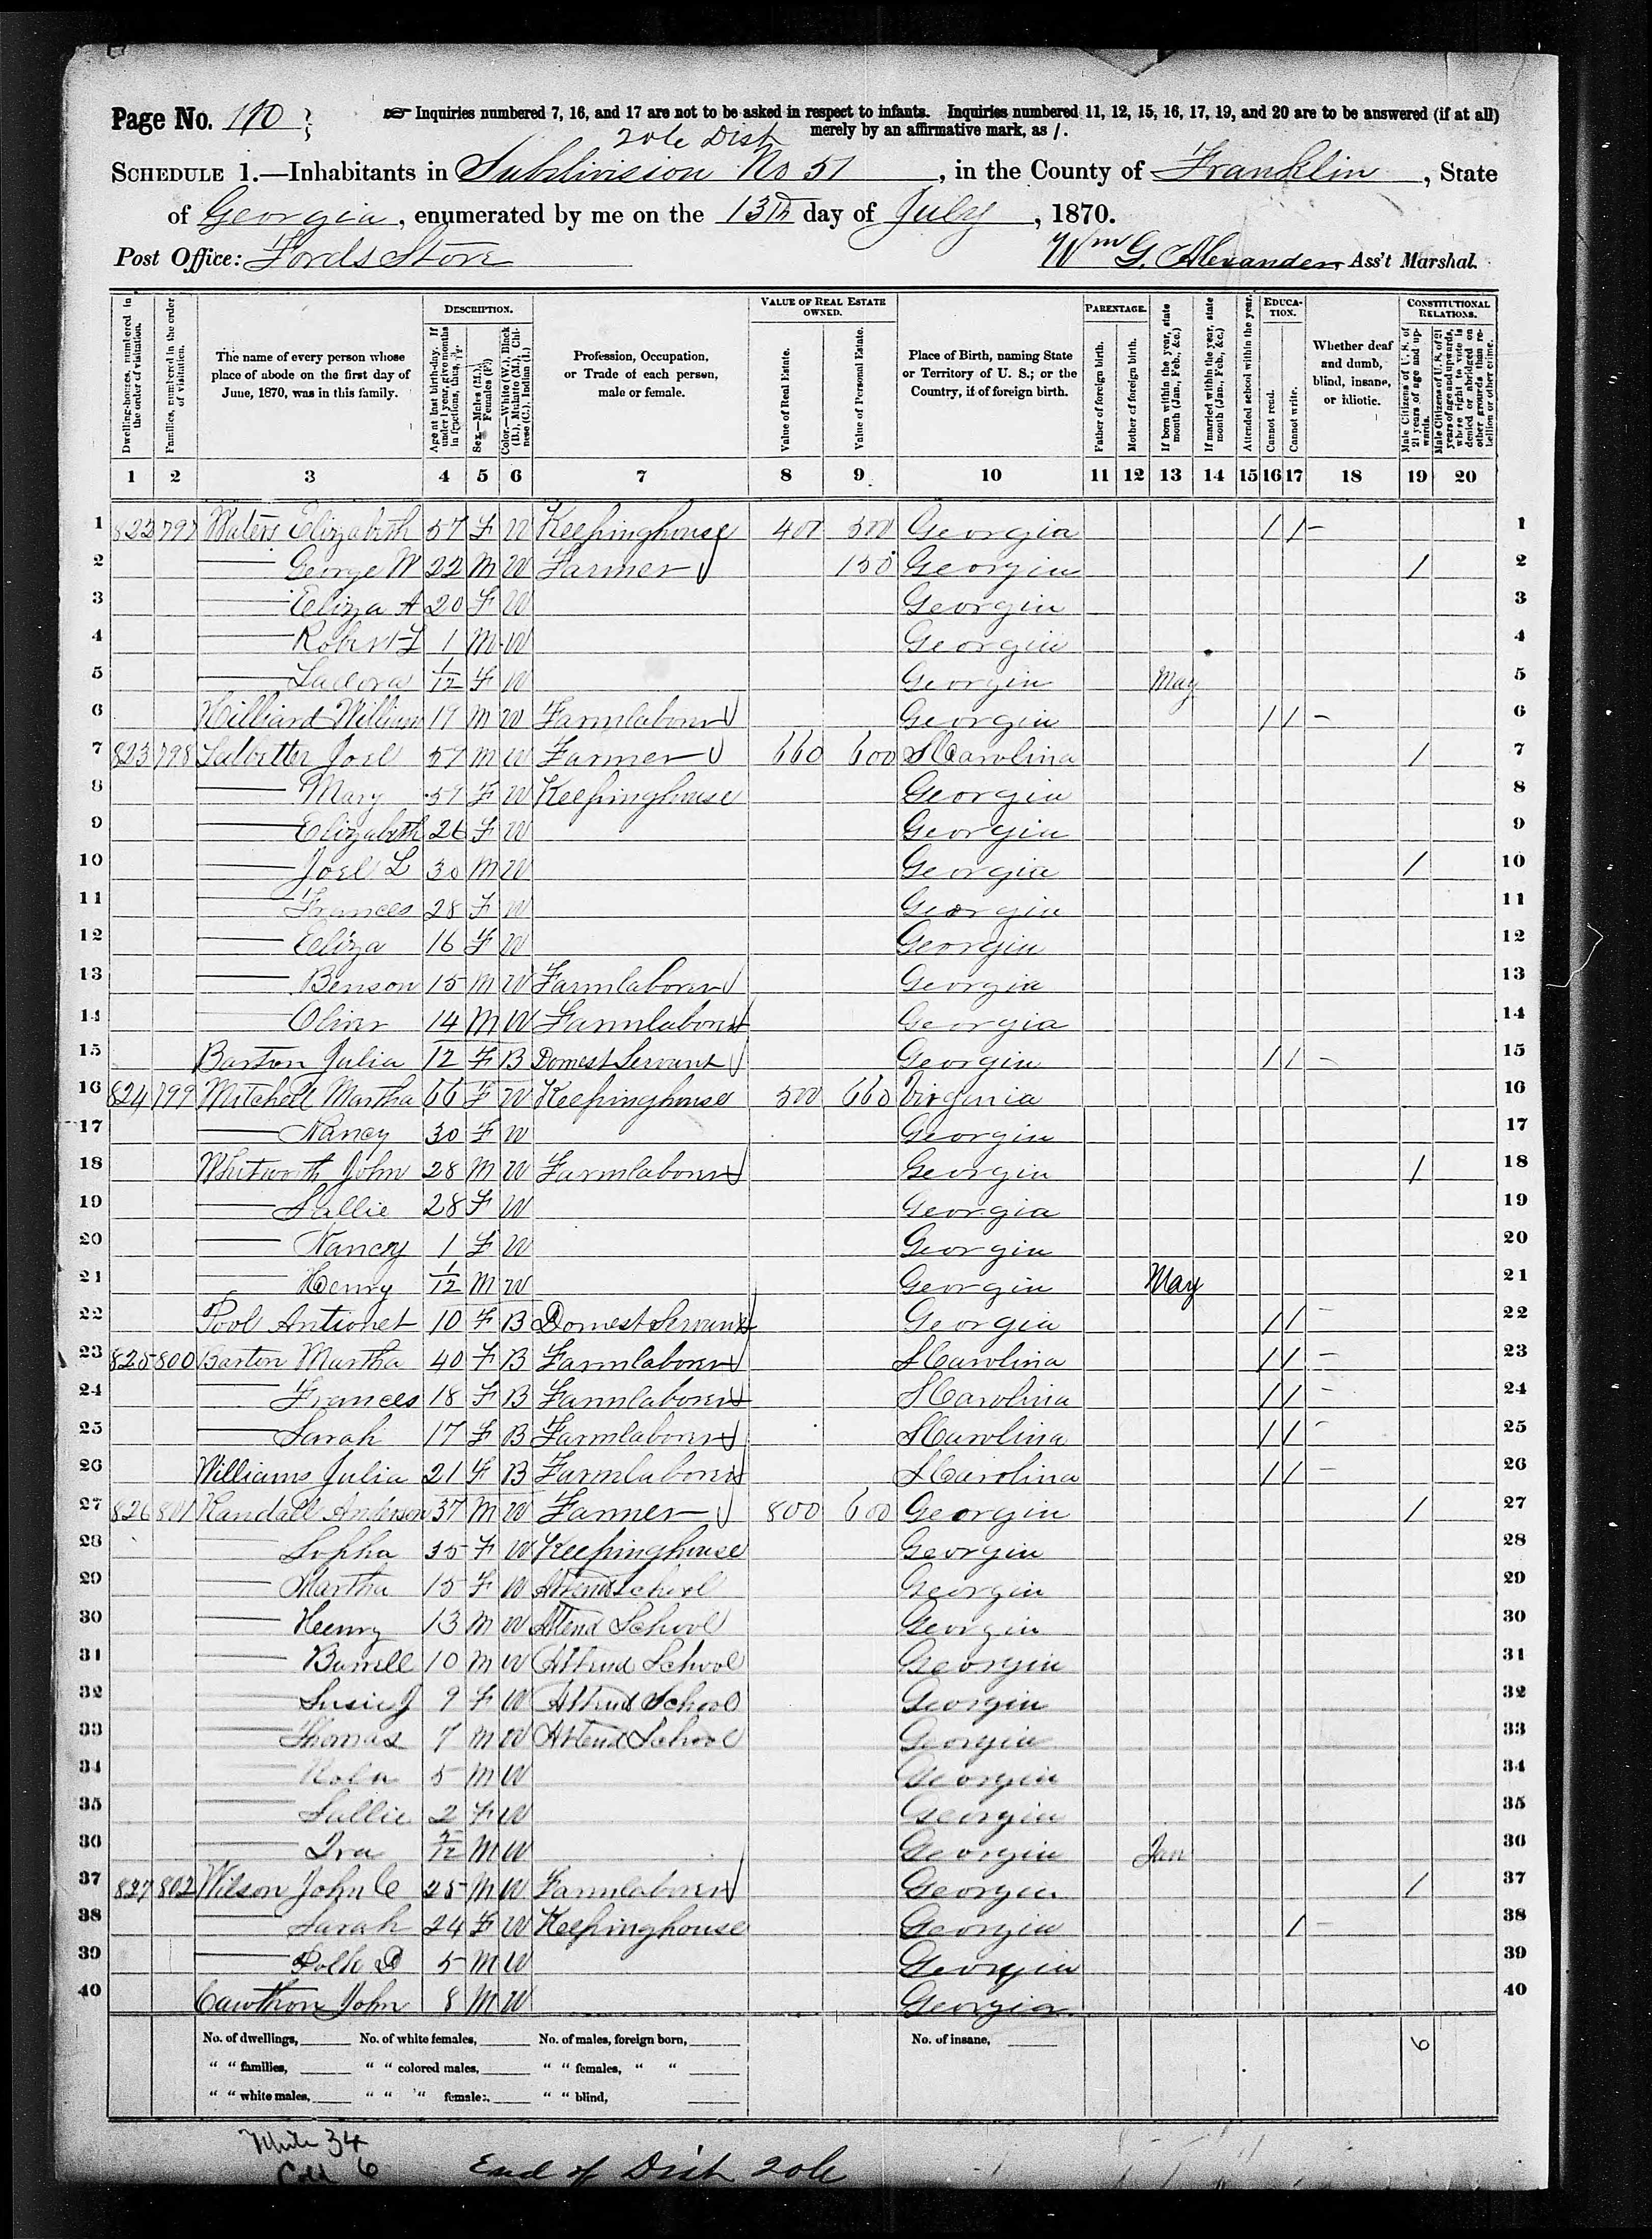 Page No. 170
☞ Inquiries numbered 7, 16, and 17 are not to be asked in respect to infants. Inquiries numbered 11, 12, 15, 16, 17, 19, and 20 are to be answered (if at all)
merely by an affirmative mark, as /.
Schedule 1.—Inhabitants in Subdivision No 51, in the County of Franklin, State
of Georgia, enumerated by me on the 13th day of July, 1870.
Post Office: Fords Store
Wm G. Alexander, Ass't Marshal.
Dwelling-houses, numbered in the order of visitation.
Families, numbered in the order of visitation.
The name of every person whose place of abode on the first day of June, 1870, was in this family.
Description.
Age at last birth-day. If under 1 year, give months in fractions, thus, 3/12.
Sex.—Males (M.), Females (F.)
Color.—White (W.), Black (B.), Mulatto (M.), Chinese (C.), Indian (I.)
Profession, Occupation, or Trade of each person, male or female.
Value of Real Estate Owned.
Value of Real Estate.
Value of Personal Estate.
Place of Birth, naming State or Territory of U. S.; or the Country, if of foreign birth.
Parentage.
Father of foreign birth.
Mother of foreign birth.
If born within the year, state month (Jan., Feb., &c.)
If married within the year, state month (Jan., Feb., &c.)
Attended school within the year.
Education.
Cannot read.
Cannot write.
Whether deaf and dumb, blind, insane, or idiotic.
Constitutional Relations.
Male Citizens of U. S. of 21 years of age and upwards.
Male Citizens of U. S. of 21 years of age and upwards, whose right to vote is denied or abridged on other grounds than rebellion or other crime.
1 2 3 4 5 6 7 8 9 10 11 12 13 14 15 16 17 18 19 20
1 822 797 Waters Elizabeth 57 F W Keepinghouse 400 500 Georgia / / 1
2 George W 22 M W Farmer 150 Georgia / 2
3 Eliza A 20 F W Georgia 3
4 Robert L 1 M W Georgia 4
5 Ladora 1/12 F W Georgia May 5
6 Hilliard William 19 M W Farmlaborer Georgia / / 6
7 823 798 Ledbetter Joel 57 M W Farmer 660 600 S Carolina / 7
8 Mary 57 F W Keepinghouse Georgia 8
9 Elizabeth 26 F W Georgia 9
10 Joel L 30 M W Georgia / 10
11 Frances 28 F W Georgia 11
12 Eliza 16 F W Georgia 12
13 Benson 15 M W Farmlaborer Georgia 13
14 Oliver 14 M W Farmlaborer Georgia 14
15 Barton Julia 12 F B Domest Servant Georgia / / 15
16 824 799 Mitchell Martha 66 F W Keepinghouse 500 660 Virginia 16
17 Nancy 30 F W Georgia 17
18 Whitworth John 28 M W Farmlaborer Georgia / 18
19 Sallie 28 F W Georgia 19
20 Nancy 1 F W Georgia 20
21 Henry 1/12 M W Georgia May 21
22 Pool Antionet 10 F B Domest Servant Georgia / / 22
23 825 800 Barton Martha 40 F B Farmlaborer S Carolina / / 23
24 Frances 18 F B Farmlaborer S Carolina / / 24
25 Sarah 17 F B Farmlaborer S Carolina / / 25
26 Williams Julia 21 F B Farmlaborer S Carolina / / 26
27 826 801 Randall Anderson 37 M W Farmer 800 600 Georgia / 27
28 Sopha 35 F W Keepinghouse Georgia 28
29 Martha 15 F W Attend School Georgia 29
30 Henry 13 M W Attend School Georgia 30
31 Burrell 10 M W Attend School Georgia 31
32 Susie J 9 F W Attend School Georgia 32
33 Thomas 7 M W Attend School Georgia 33
34 5 M W Georgia 34
35 Sallie 2 F W Georgia 35
36 Ira 5/12 M W Georgia Jan 36
37 827 802 Wilson John C 25 M W Farmlaborer Georgia / 37
38 Sarah 24 F W Keepinghouse Georgia / 38
39 Polk D 5 M W Georgia 39
40 Cawthon John 8 M W Georgia 40
No. of dwellings, No. of white females, No. of males, foreign born, No. of insane, 6
" " families, " " colored males, " " females, " "
" " white males, " " " females, " " blind,
White 34
Cold 6
End of Dist 206